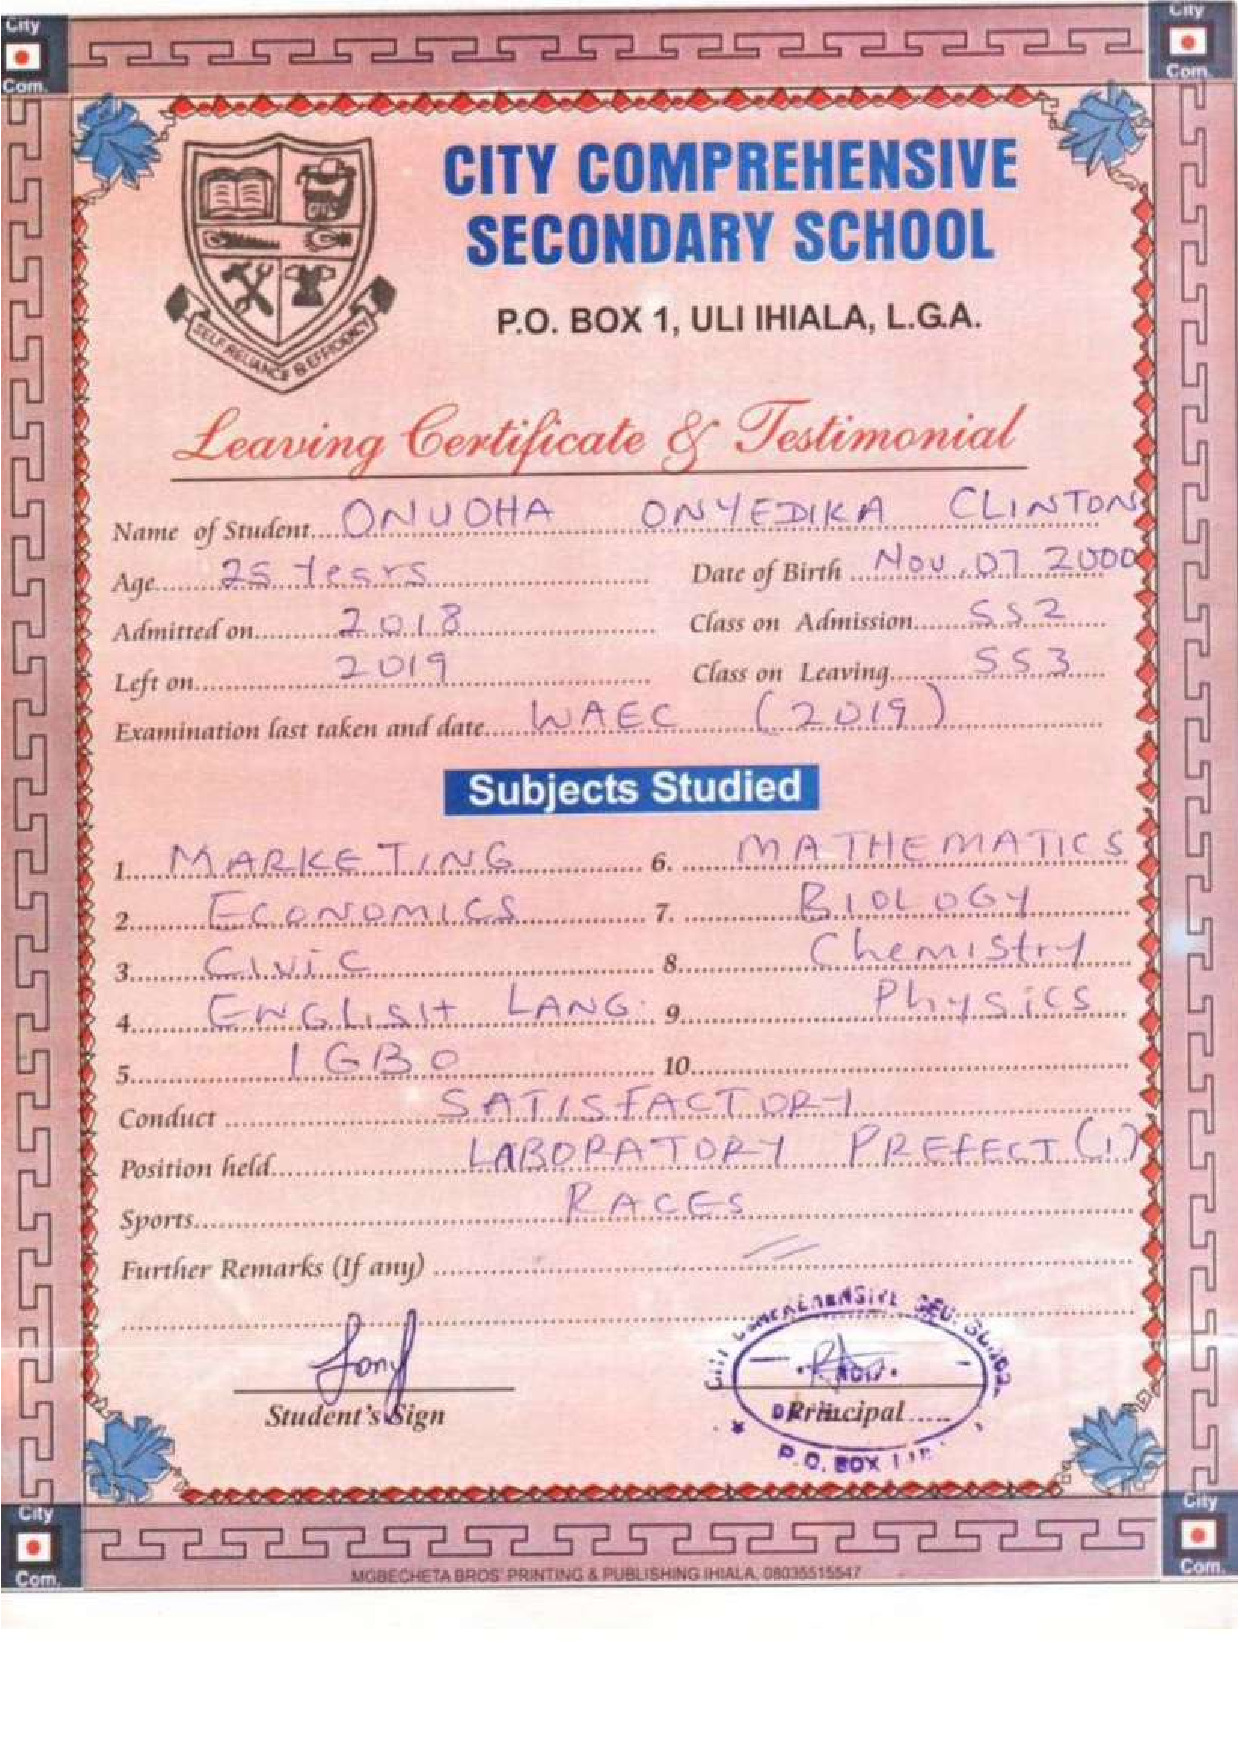 City
City
Com.
Com.
CITY COMPREHENSIVE
SECONDARY SCHOOL
P.O. BOX 1, ULI IHIALA, L.G.A.
SELF RELIANCE & EFFICIENCY
Leaving Certificate & Testimonial
Name of Student ONUOHA ONYEDIKA CLINTON
Age 25 Years Date of Birth Nov. 07 2000
Admitted on 2018 Class on Admission SS2
Left on 2019 Class on Leaving SS3
Examination last taken and date WAEC (2019)
Subjects Studied
1. MARKETING 6. MATHEMATICS
2. ECONOMICS 7. BIOLOGY
3. CIVIC 8. Chemistry
4. ENGLISH LANG. 9. Physics
5. IGBO 10.
Conduct SATISFACTORY
Position held LABORATORY PREFECT (1)
Sports RACES
Further Remarks (If any)
COMPREHENSIVE SEC. SCHOOL
Student's Sign Principal
P.O. BOX 1
City
City
Com.
Com.
MGBECHETA BROS' PRINTING & PUBLISHING IHIALA, 08035515547